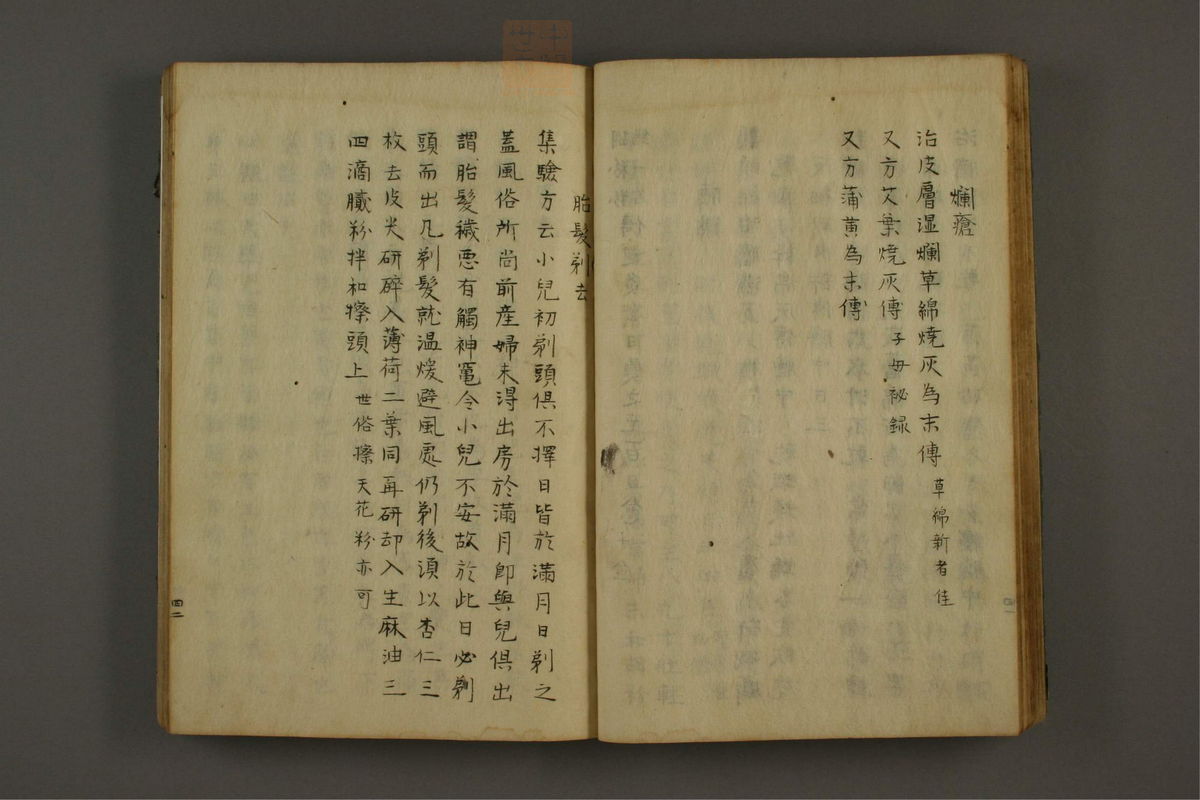 爛瘡
治皮膚湿爛草綿焼灰為末傅 草綿新者佳
又方艾葉焼灰傅 子母秘録
又方蒲黄為末傅
胎髮剃去
集驗方云小兒初剃頭俱不擇日皆於滿月日剃之
蓋風俗所尚前産婦未淂出房於滿月即與兒俱出
謂胎髮穢悪有觸神竃令小兒不安故於此日必剃
頭而出凡剃髮就温煖避風處仍剃後須以杏仁三
枚去皮尖研碎入薄荷二葉同再研却入生麻油三
四滴膩粉拌和擦頭上 世俗擦天花粉亦可
四二